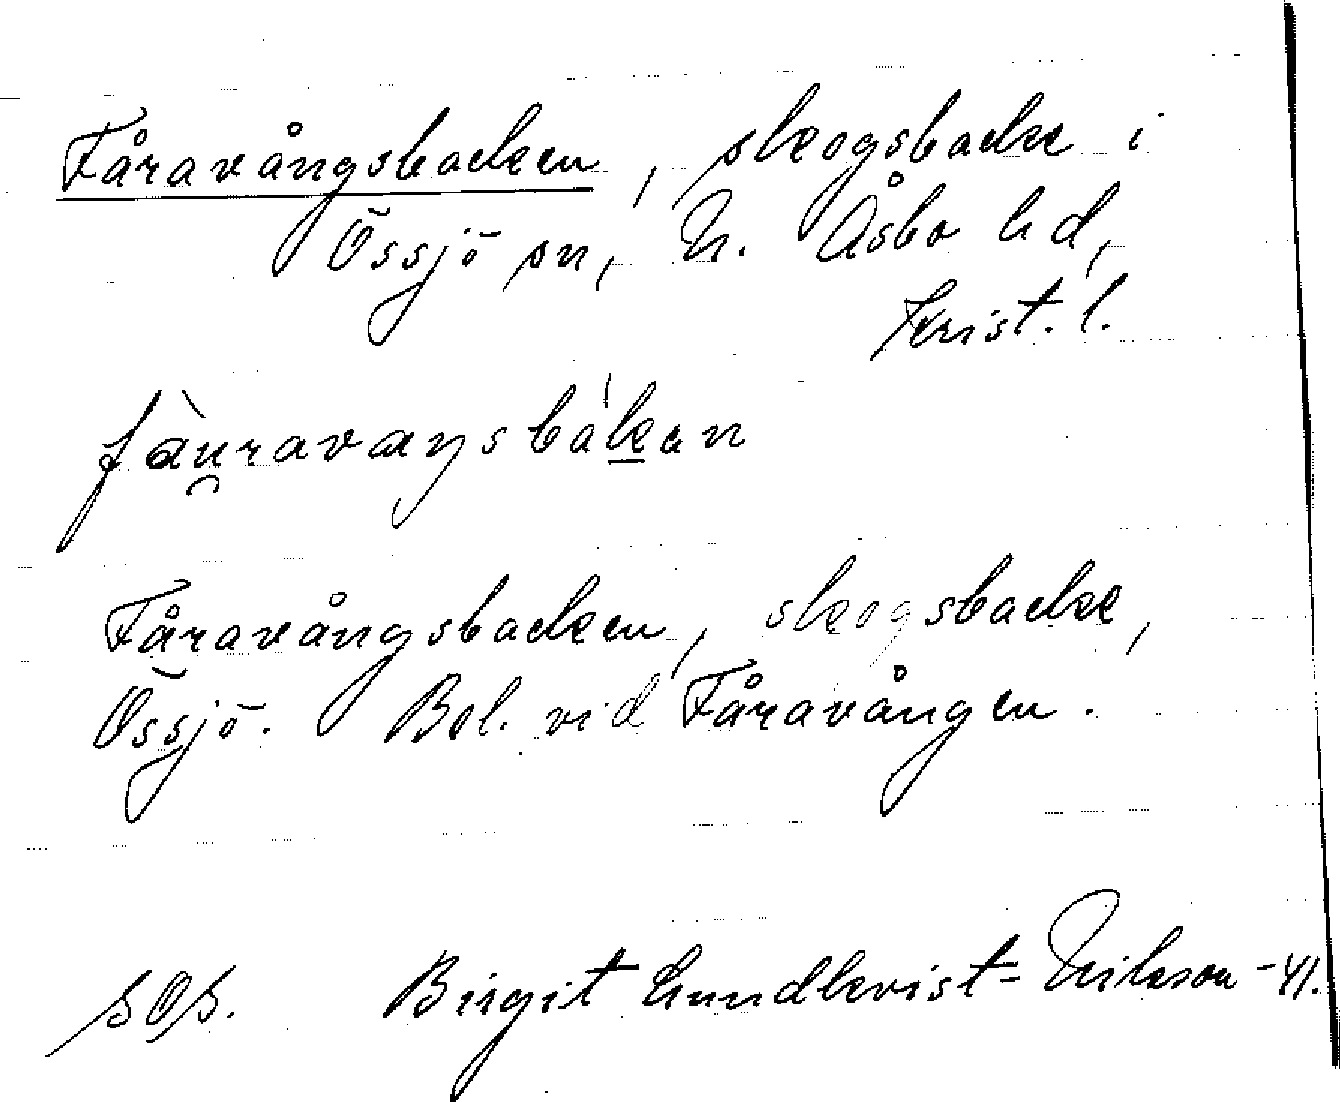 Fåravångsbacken, skogsbacke i
Össjö sn, N. Åsbo hd,
Krist. l.
Fåravångsbacken, skogsbacke,
Össjö. Bel. vid Fåravången.
Birgit Lundkvist-Nilsson -41.